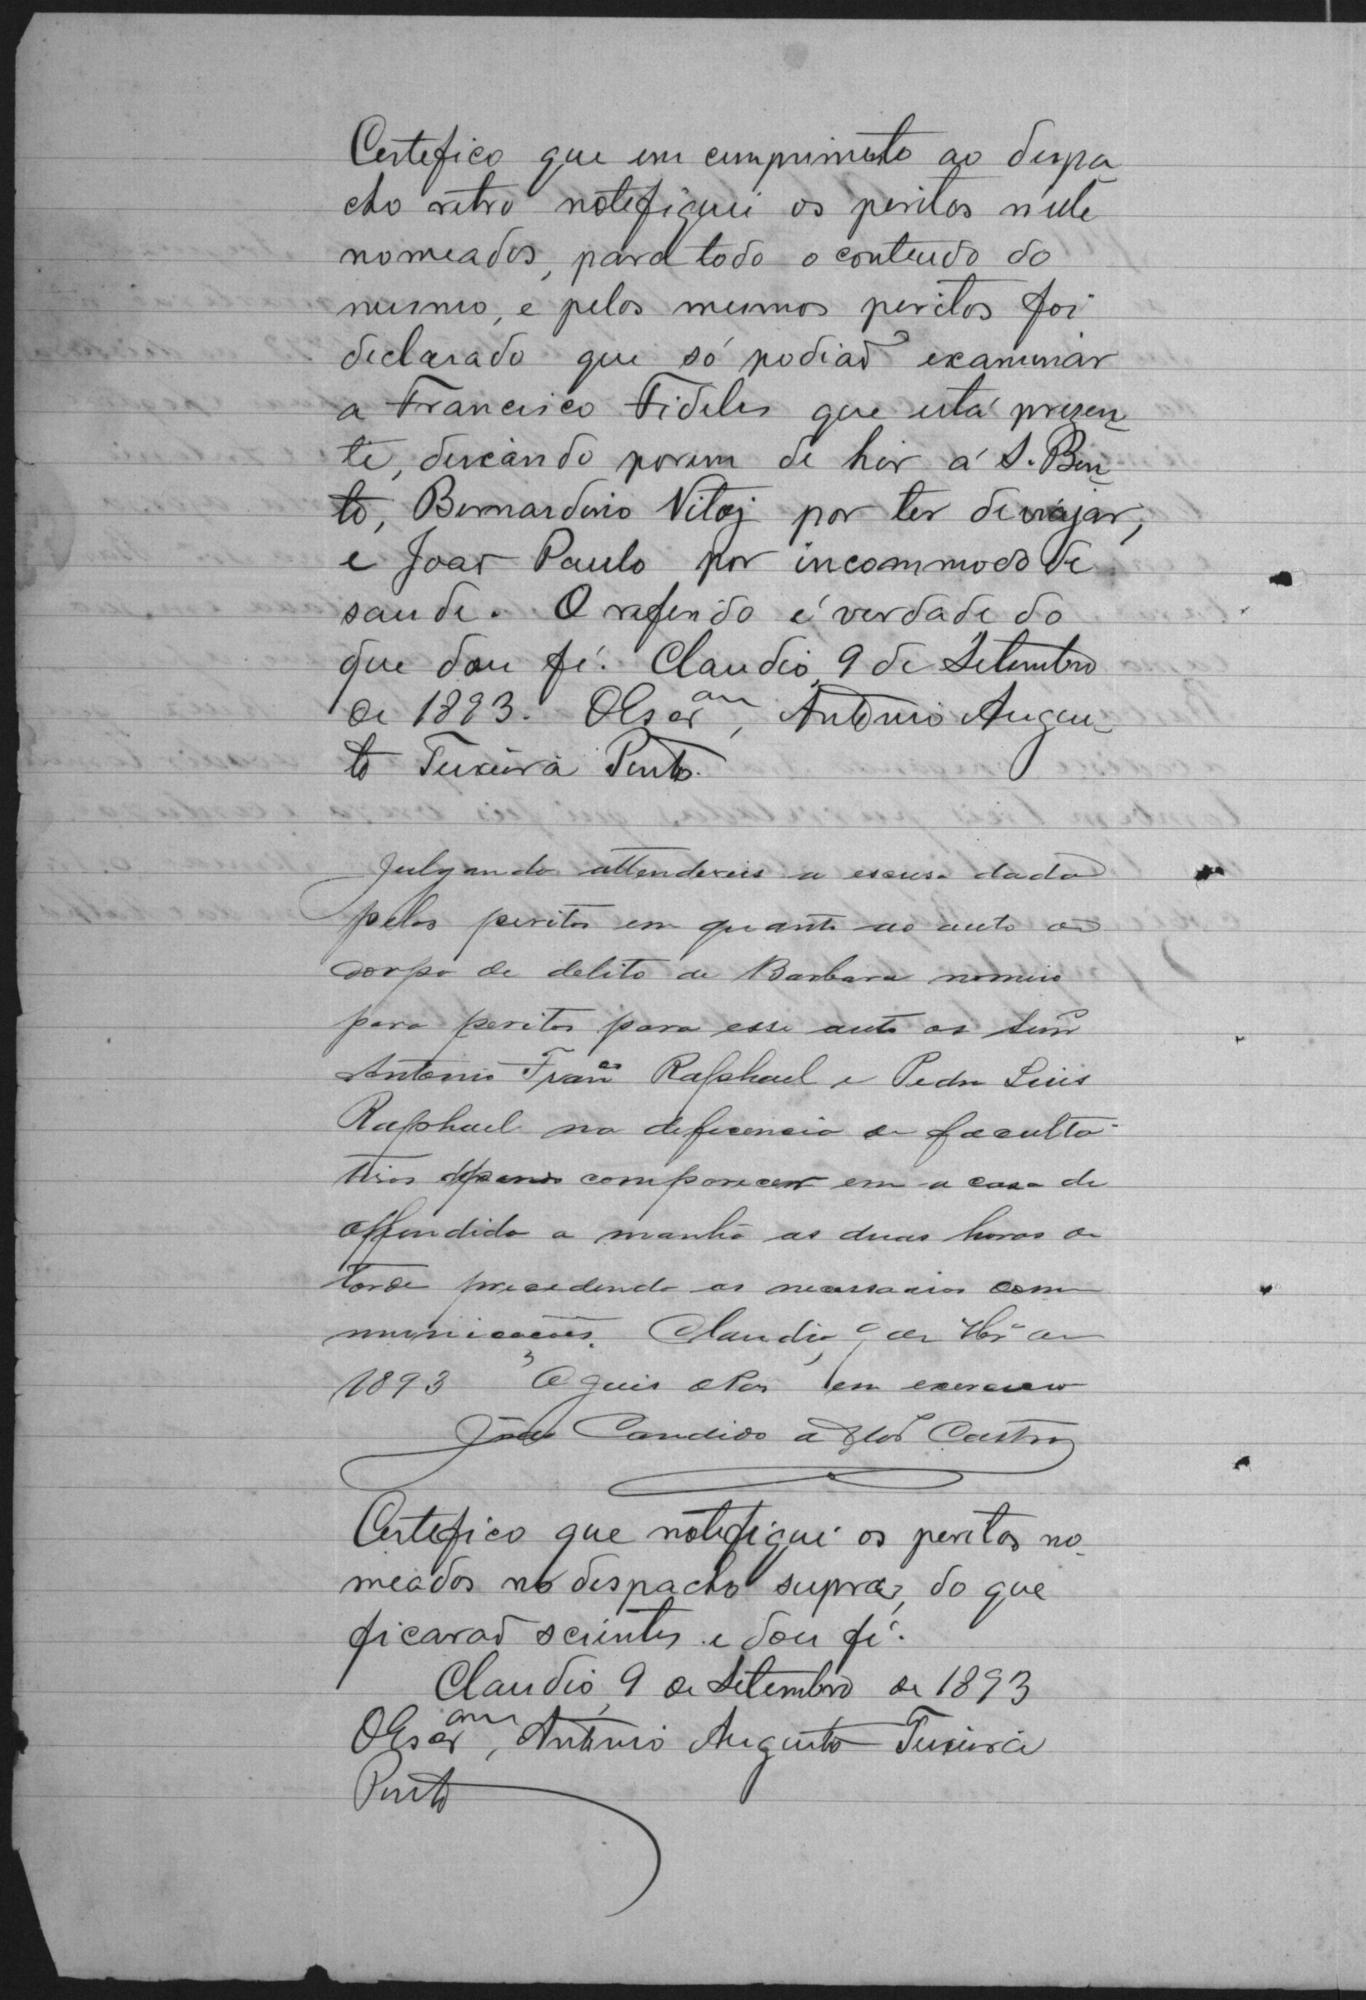 Certefico que em cumprimento ao despa
cho retro notefiquei os peritos nele
nomeados, para todo o conteudo do
mesmo, e pelos mesmos peritos foi
declarado que só podiaõ examinar
a Francisco Fidelis que está prezen
te, deixando porem de hir á S. Ben
to, Bernardino Vitaj por ter de viajar,
e Joaõ Paulo por incommodo de
saude. O referido é verdade do
que dou fé. Claudio, 9 de Setembro
de 1893. O Escr.am, Antonio Augus
to Teixeira Pinto.
Julgando attendiveis a escusa dada
pelos peritos em quanto ao auto de
corpo de delito de Barbara nomeio
para peritos para esse auto os Snr.es
Antonio Fran.co Raphael e Pedro Luis
Raphael na deficencia de faculta
tivos comparecer em a casa de
offendida a manhã as duas horas da
tarde precedendo as necessarias com
municações. Claudio, 9 de 7br.o de
1893 O juis em exercicio
João Candido Castro
Certefico que notefiquei os peritos no
meados no despacho supra, do que
ficaraõ scientes e dou fé.
Claudio, 9 de Setembro de 1893
O Escr.am, Antonio Augusto Teixeira
Pinto